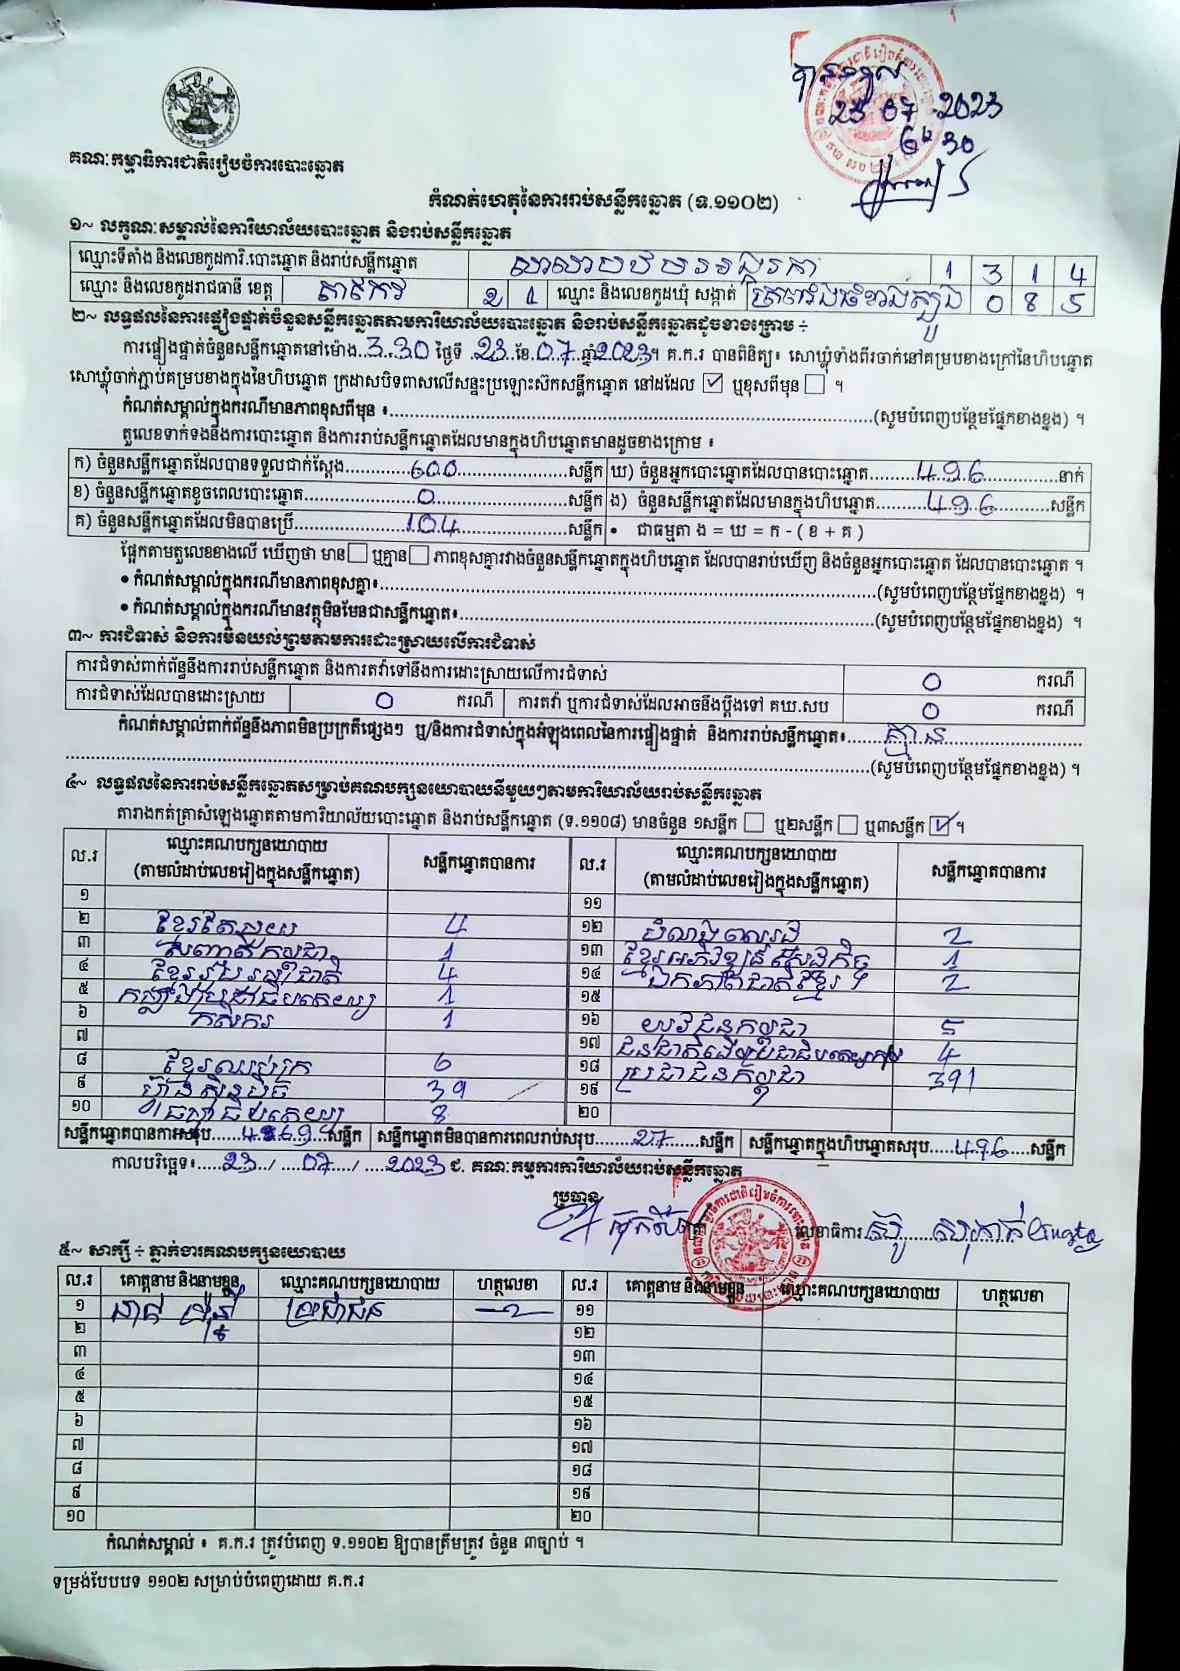 បានទទួល
23 07 2023
6h 30
គណៈកម្មាធិការជាតិរៀបចំការបោះឆ្នោត
កំណត់ហេតុនៃការរាប់សន្លឹកឆ្នោត (ទ.១១០២)
១~ លក្ខណៈសម្គាល់នៃការិយាល័យបោះឆ្នោត និងរាប់សន្លឹកឆ្នោត
ឈ្មោះទីតាំង និងលេខកូដការិ.បោះឆ្នោត និងរាប់សន្លឹកឆ្នោត 1 3 1 4
ឈ្មោះ និងលេខកូដរាជធានី ខេត្ត តាកែវ 2 1 ឈ្មោះ និងលេខកូដឃុំ សង្កាត់ ត្រពាំងធំខាងត្បូង 0 8 5
២~ លទ្ធផលនៃការផ្ទៀងផ្ទាត់ចំនួនសន្លឹកឆ្នោតតាមការិយាល័យបោះឆ្នោត និងរាប់សន្លឹកឆ្នោតដូចខាងក្រោម ÷
ការផ្ទៀងផ្ទាត់ចំនួនសន្លឹកឆ្នោតនៅម៉ោង..3.30 ថ្ងៃទី .23..ខែ.07..ឆ្នាំ2023។ គ.ក.រ បានពិនិត្យ៖ សោឃ្លុំទាំងពីរចាក់នៅគម្របខាងក្រៅនៃហិបឆ្នោត
សោឃ្លុំចាក់ភ្ជាប់គម្របខាងក្នុងនៃហិបឆ្នោត ក្រដាសបិទពាសលើសន្ទះប្រឡោះស៊កសន្លឹកឆ្នោត នៅដដែល ☑ ឬខុសពីមុន ☐ ។
កំណត់សម្គាល់ក្នុងករណីមានភាពខុសពីមុន ៖........(សូមបំពេញបន្ថែមផ្នែកខាងខ្នង) ។
តួលេខទាក់ទងនឹងការបោះឆ្នោត និងការរាប់សន្លឹកឆ្នោតដែលមានក្នុងហិបឆ្នោតមានដូចខាងក្រោម ៖
ក) ចំនួនសន្លឹកឆ្នោតដែលបានទទួលជាក់ស្តែង........600........សន្លឹក ឃ) ចំនួនអ្នកបោះឆ្នោតដែលបានបោះឆ្នោត........496........នាក់
ខ) ចំនួនសន្លឹកឆ្នោតខូចពេលបោះឆ្នោត........0........សន្លឹក ង) ចំនួនសន្លឹកឆ្នោតដែលមានក្នុងហិបឆ្នោត........496........សន្លឹក
គ) ចំនួនសន្លឹកឆ្នោតដែលមិនបានប្រើ........104........សន្លឹក • ជាធម្មតា ង = ឃ = ក - ( ខ + គ )
ផ្អែកតាមតួលេខខាងលើ ឃើញថា មាន☐ ឬគ្មាន☐ ភាពខុសគ្នារវាងចំនួនសន្លឹកឆ្នោតក្នុងហិបឆ្នោត ដែលបានរាប់ឃើញ និងចំនួនអ្នកបោះឆ្នោត ដែលបានបោះឆ្នោត ។
• កំណត់សម្គាល់ក្នុងករណីមានភាពខុសគ្នា៖........(សូមបំពេញបន្ថែមផ្នែកខាងខ្នង) ។
• កំណត់សម្គាល់ក្នុងករណីមានវត្ថុមិនមែនជាសន្លឹកឆ្នោត៖........(សូមបំពេញបន្ថែមផ្នែកខាងខ្នង) ។
៣~ ការជំទាស់ និងការមិនយល់ព្រមតាមការដោះស្រាយលើការជំទាស់
ការជំទាស់ពាក់ព័ន្ធនឹងការរាប់សន្លឹកឆ្នោត និងការតវ៉ាទៅនឹងការដោះស្រាយលើការជំទាស់ 0 ករណី
ការជំទាស់ដែលបានដោះស្រាយ 0 ករណី ការតវ៉ា ឬការជំទាស់ដែលអាចនឹងប្តឹងទៅ គឃ.សប 0 ករណី
កំណត់សម្គាល់ពាក់ព័ន្ធនឹងភាពមិនប្រក្រតីផ្សេងៗ ឬ/និងការជំទាស់ក្នុងអំឡុងពេលនៃការផ្ទៀងផ្ទាត់ និងការរាប់សន្លឹកឆ្នោត៖........គ្មាន........
........(សូមបំពេញបន្ថែមផ្នែកខាងខ្នង) ។
៤~ លទ្ធផលនៃការរាប់សន្លឹកឆ្នោតសម្រាប់គណបក្សនយោបាយនីមួយៗតាមការិយាល័យរាប់សន្លឹកឆ្នោត
តារាងកត់ត្រាសំឡេងឆ្នោតតាមការិយាល័យបោះឆ្នោត និងរាប់សន្លឹកឆ្នោត (ទ.១១០៨) មានចំនួន ១សន្លឹក ☐ ឬ២សន្លឹក ☐ ឬ៣សន្លឹក ☑ ។
ល.រ ឈ្មោះគណបក្សនយោបាយ (តាមលំដាប់លេខរៀងក្នុងសន្លឹកឆ្នោត) សន្លឹកឆ្នោតបានការ ល.រ ឈ្មោះគណបក្សនយោបាយ (តាមលំដាប់លេខរៀងក្នុងសន្លឹកឆ្នោត) សន្លឹកឆ្នោតបានការ
១ ១១
២ ខ្មែរតែមួយ 4 ១២ 2
៣ សញ្ជាតិកម្ពុជា 1 ១៣ ខ្មែរអភិវឌ្ឍន៍សេដ្ឋកិច្ច 1
៤ ខ្មែររួបរួមជាតិ 4 ១៤ ឯកភាពជាតិខ្មែរ 2
៥ 1 ១៥
៦ កសិករ 1 ១៦ យុវជនកម្ពុជា 5
៧ ១៧ 4
៨ ខ្មែរឈប់ក្រ 6 ១៨ ប្រជាជនកម្ពុជា 391
៩ ហ៊្វុនស៊ិនប៉ិច 39 ១៩
១០ 8 ២០
សន្លឹកឆ្នោតបានការសរុប......469......សន្លឹក សន្លឹកឆ្នោតមិនបានការពេលរាប់សរុប........27......សន្លឹក សន្លឹកឆ្នោតក្នុងហិបឆ្នោតសរុប.....496....សន្លឹក
កាលបរិច្ឆេទ៖.....23../....07..../....2023 ជ. គណៈកម្មការការិយាល័យរាប់សន្លឹកឆ្នោត
ប្រធាន លេខាធិការ
៥~ សាក្សី ÷ ភ្នាក់ងារគណបក្សនយោបាយ
ល.រ គោត្តនាម និងនាមខ្លួន ឈ្មោះគណបក្សនយោបាយ ហត្ថលេខា ល.រ គោត្តនាម និងនាមខ្លួន ឈ្មោះគណបក្សនយោបាយ ហត្ថលេខា
១ ប្រជាជន ១១
២ ១២
៣ ១៣
៤ ១៤
៥ ១៥
៦ ១៦
៧ ១៧
៨ ១៨
៩ ១៩
១០ ២០
កំណត់សម្គាល់ ៖ គ.ក.រ ត្រូវបំពេញ ទ.១១០២ ឱ្យបានត្រឹមត្រូវ ចំនួន ៣ច្បាប់ ។
ទម្រង់បែបបទ ១១០២ សម្រាប់បំពេញដោយ គ.ក.រ